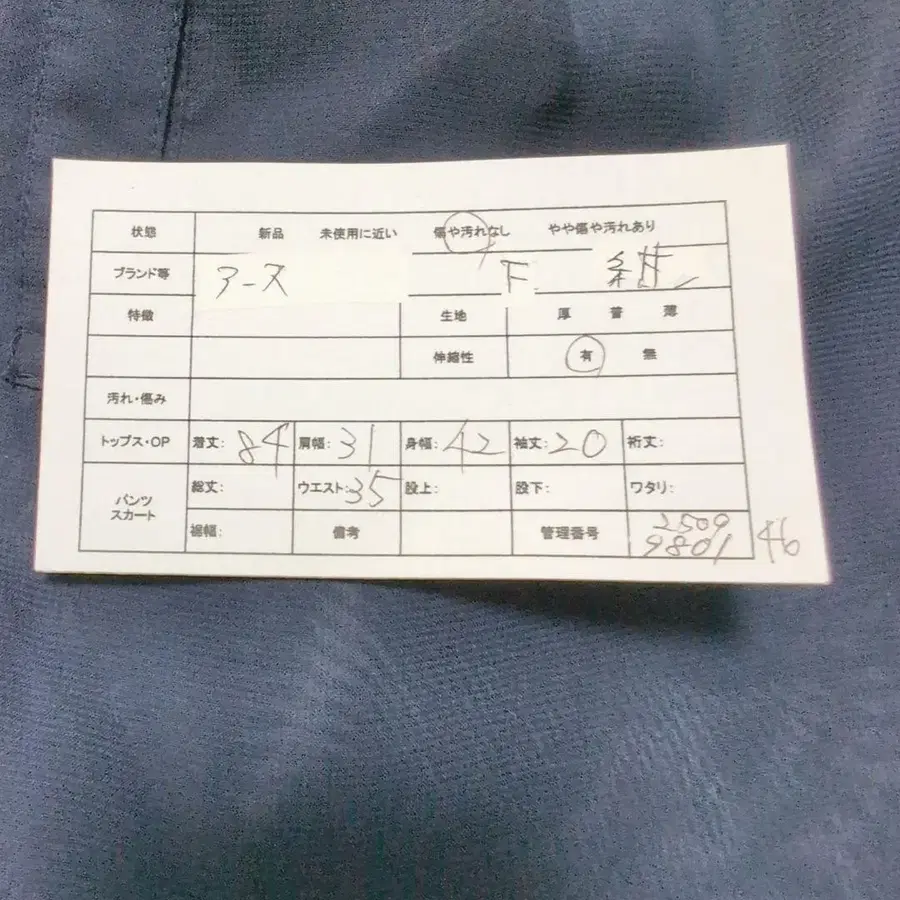 状態 新品 未使用に近い 傷や汚れなし やや傷や汚れあり
ブランド等 アース F 紺
特徴 生地 厚 普 薄
伸縮性 有 無
汚れ・傷み
トップス・OP 着丈: 84 肩幅: 31 身幅: 42 袖丈: 20 裄丈:
パンツ スカート 総丈: ウエスト: 35 股上: 股下: ワタリ:
裾幅: 備考 管理番号 2509
9801 46